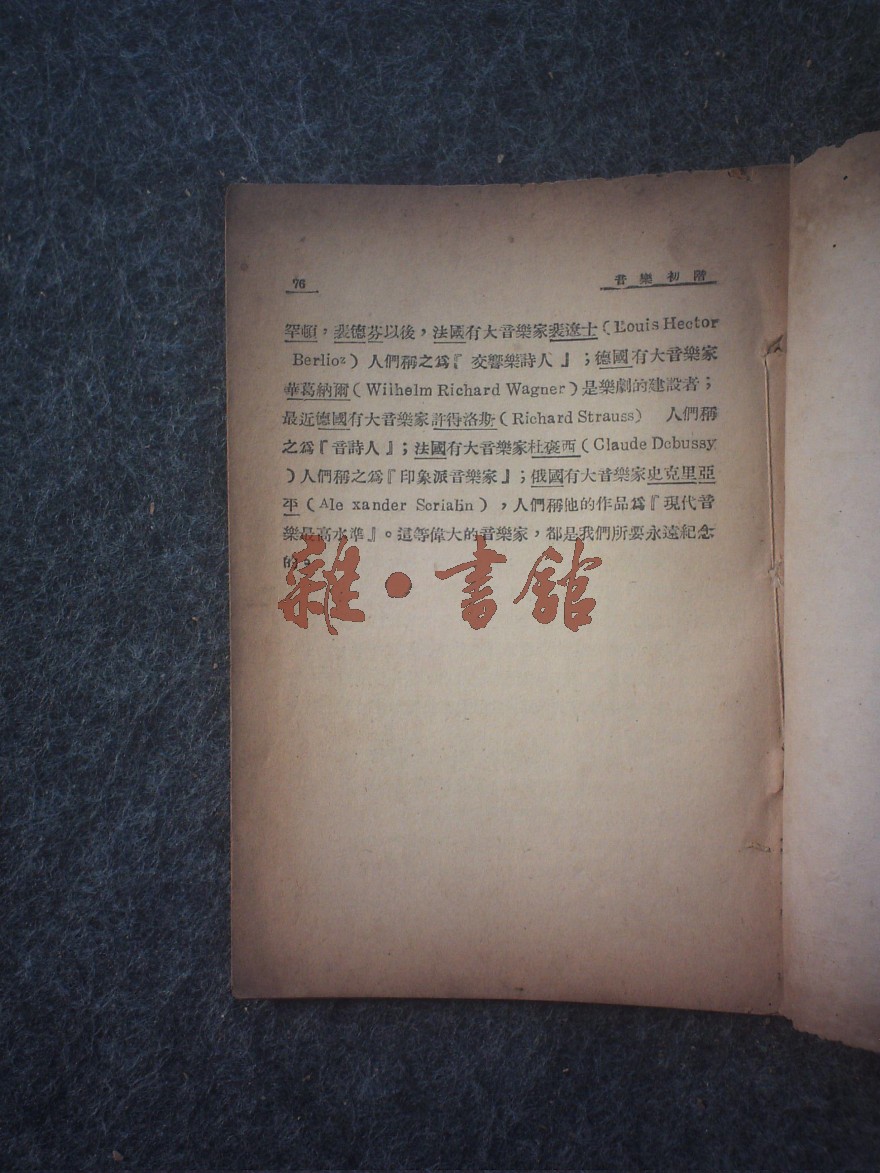 76
音樂初階
罕頓，裴德芬以後，法國有大音樂家裴遼士（Louis Hector
Berlioz）人們稱之爲『交響樂詩人』；德國有大音樂家
華葛納爾（Wilhelm Richard Wagner）是樂劇的建設者；
最近德國有大音樂家許得洛斯（Richard Strauss） 人們稱
之爲『音詩人』；法國有大音樂家杜褒西（Claude Debussy
）人們稱之爲『印象派音樂家』；俄國有大音樂家史克里亞
平（Ale xander Scriabin），人們稱他的作品爲『現代音
樂最高水準』。這等偉大的音樂家，都是我們所要永遠紀念
的。
雜·書館